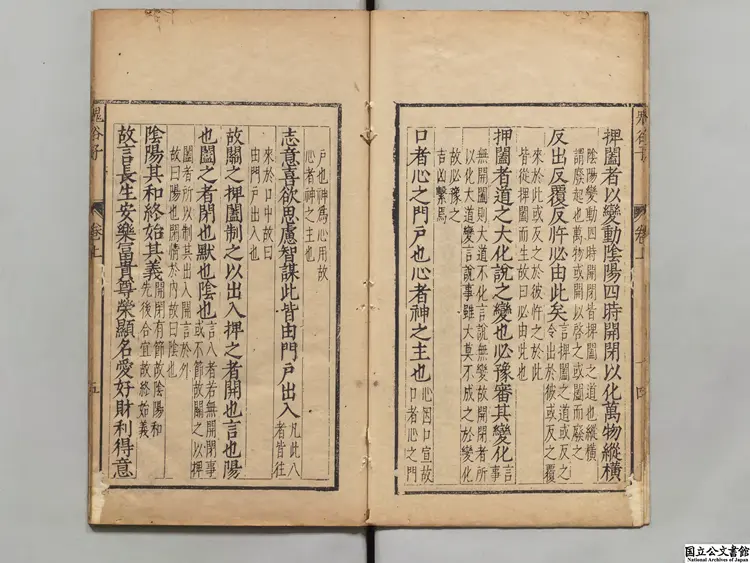 鬼谷子 卷上 四
捭闔者以變動陰陽四時開閉以化萬物縱横
陰陽變動四時開閉皆捭闔之道也縱横
謂廢起也萬物或開以啓之或闔而廢之
反出反覆反忤必由此矣
言捭闔之道或反之
令出於彼或反之覆
來於此或反之於彼忤之於此
皆從捭闔而生故曰必由此也
捭闔者道之大化說之變也必豫審其變化
言
事
無開闔則大道不化言說無變故開閉者所
以化大道變言說事雖大莫不成之於變化
故必豫之
吉凶繫焉
口者心之門戸也心者神之主也
心因口宣故
口者心之門
戸也神爲心用故
心者神之主也
志意喜欲思慮智謀此皆由門戸出入
凡此八
者皆往
來於口中故曰
由門戸出入也
故關之捭闔制之以出入捭之者開也言也陽
也闔之者閉也默也陰也
言入者若無開閉事
或不節故關之以捭
闔者所以制其出入開言於外
故曰陽也閉情於内故曰陰也
陰陽其和終始其義
開閉有節故陰陽和
先後合宜故終始義
故言長生安樂富貴尊榮顯名愛好財利得意
鬼谷子 卷上 五
国立公文書館
National Archives of Japan